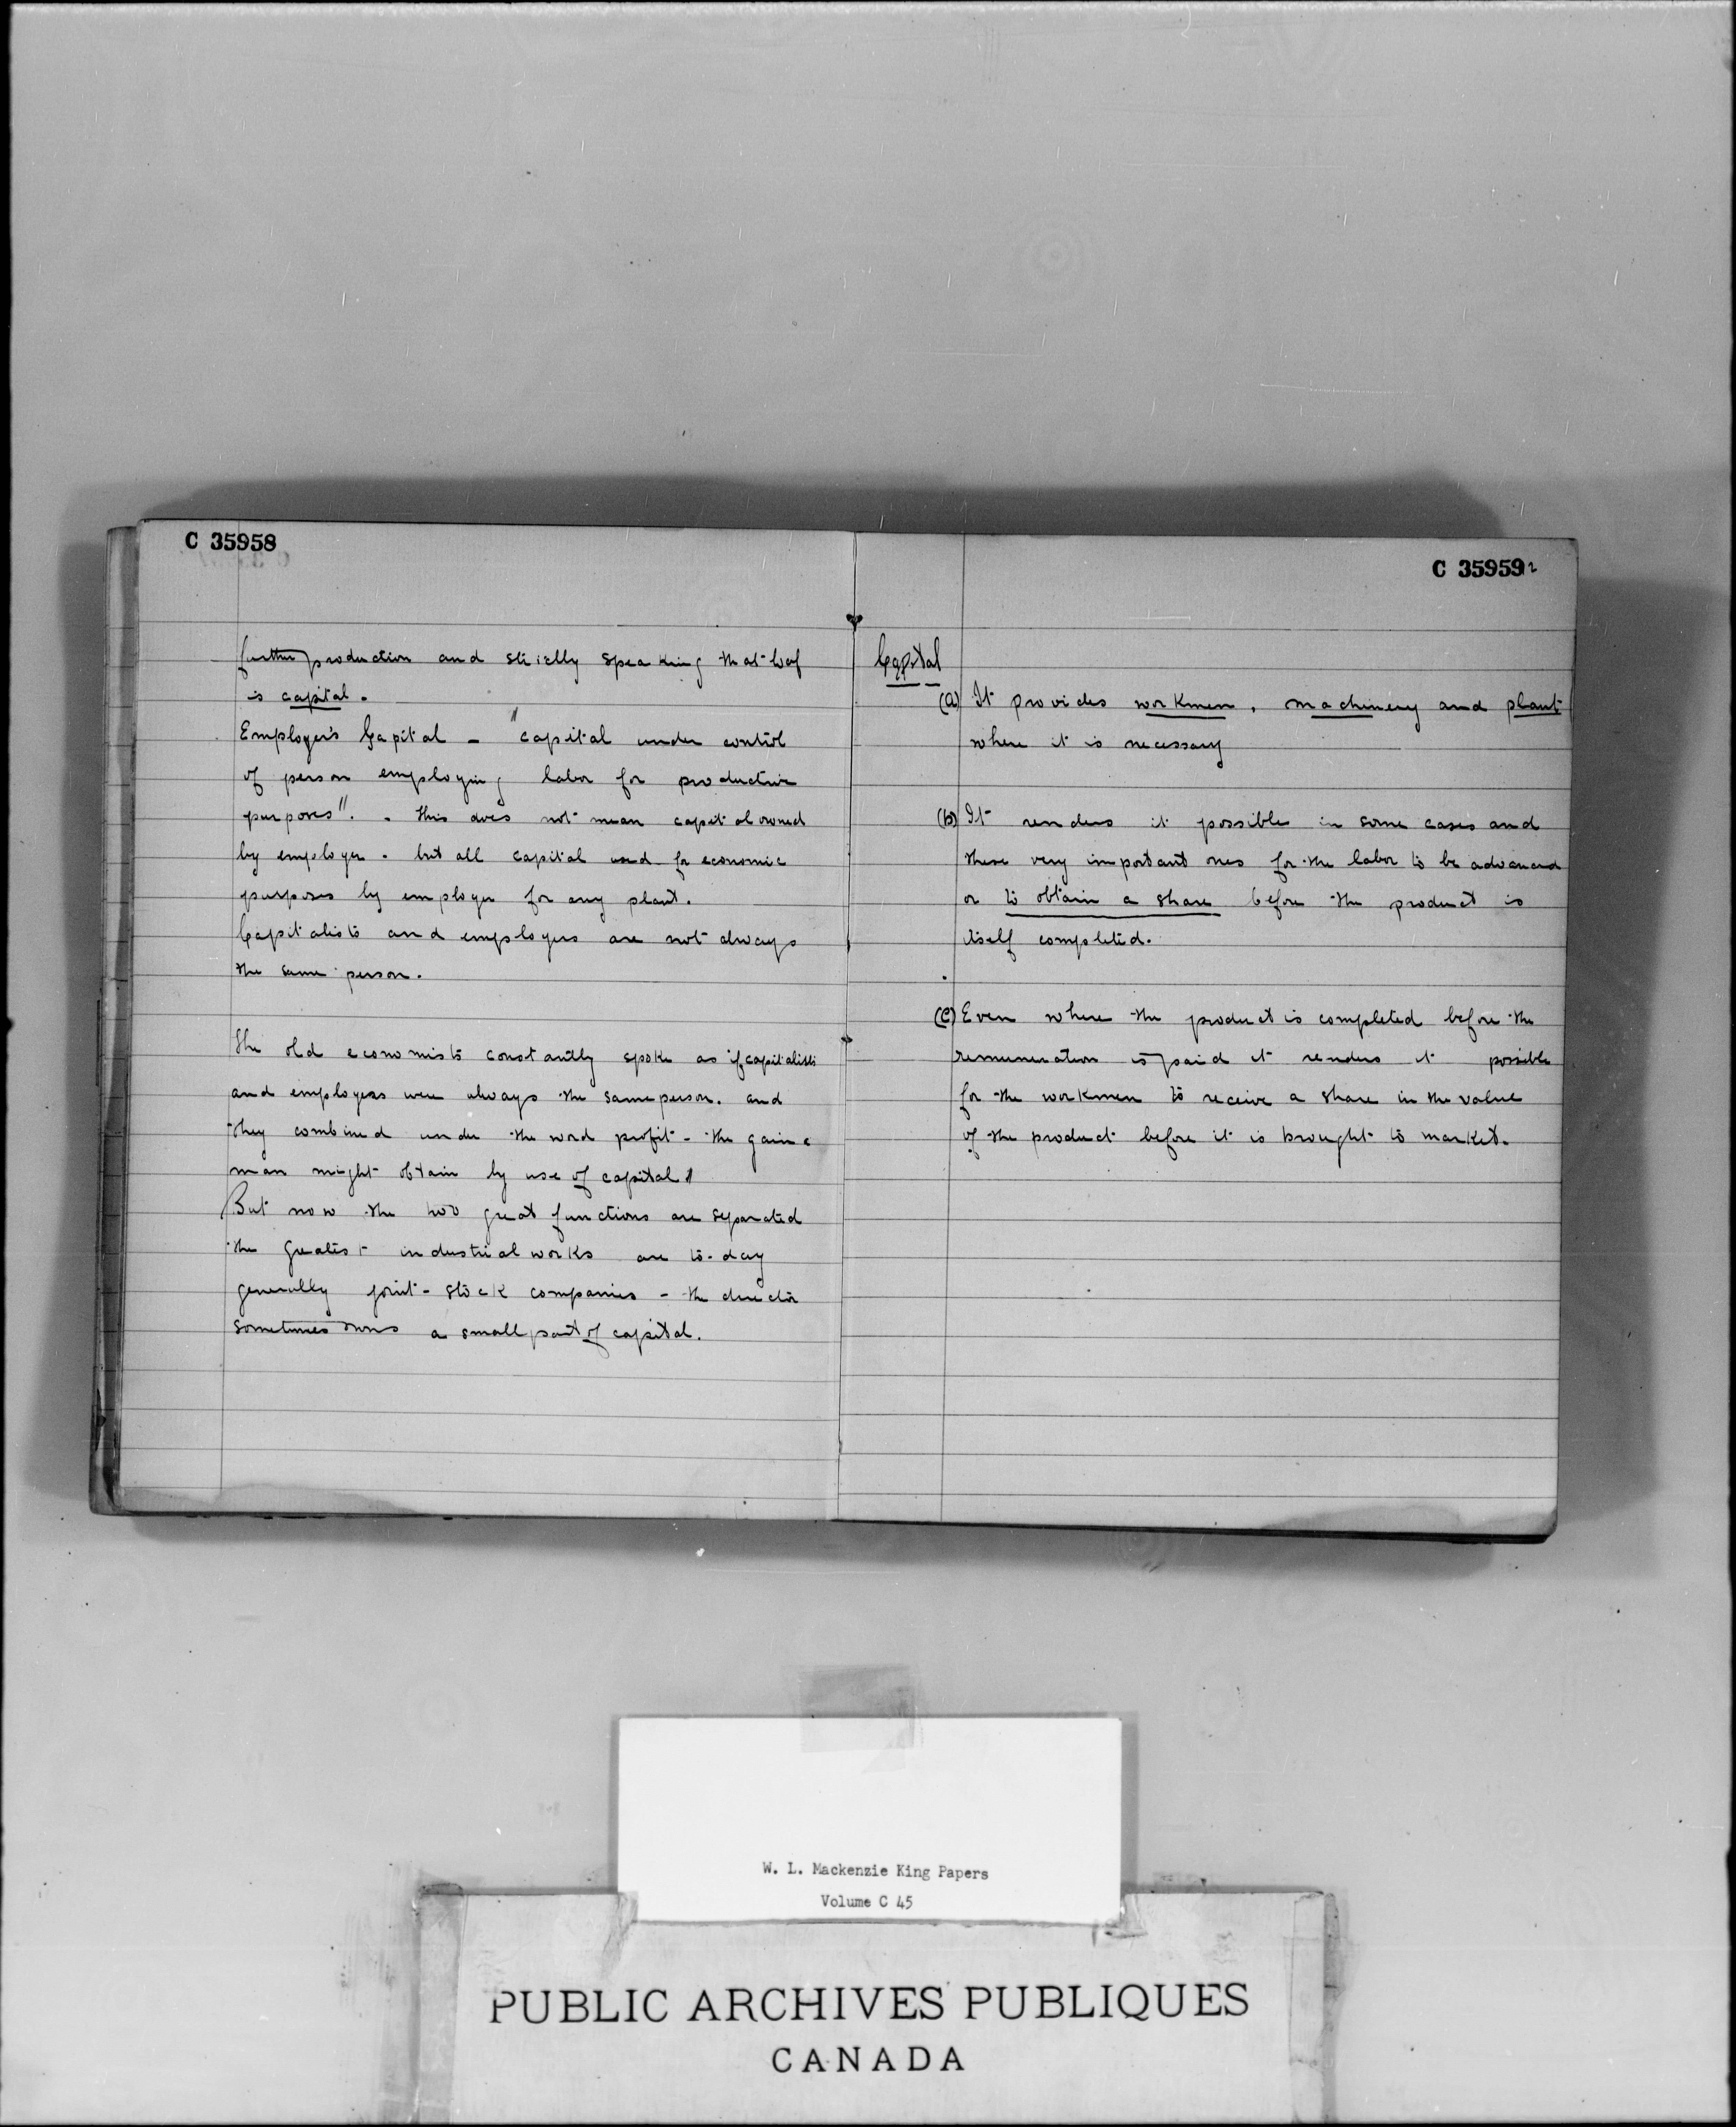 C 35958
further production and strictly speaking that loaf
is capital.
Employer's Capital - "capital under control
of person employing labor for productive
purposes". - this does not mean capital owned
by employer. but all capital used for economic
purposes by employer for any plant.
Capitalists and employers are not always
the same person.
The old economists constantly spoke as if capitalists
and employers were always the same person. and
they combined under the word profit - the gain a
man might obtain by use of capital
But now the two great functions are separated
the greatest industrial works are to-day
generally joint-stock companies - the director
sometimes owns a small part of capital.
C 35959
Capital
(a) It provides workmen, machinery and plant
where it is necessary
(b) It renders it possible in some cases and
these very important ones for the labor to be advanced
or to obtain a share before the product is
itself completed.
(c) Even where the product is completed before the
remuneration is paid it renders it possible
for the workmen to receive a share in the value
of the product before it is brought to market.
W. L. Mackenzie King Papers
Volume C 45
PUBLIC ARCHIVES PUBLIQUES
CANADA